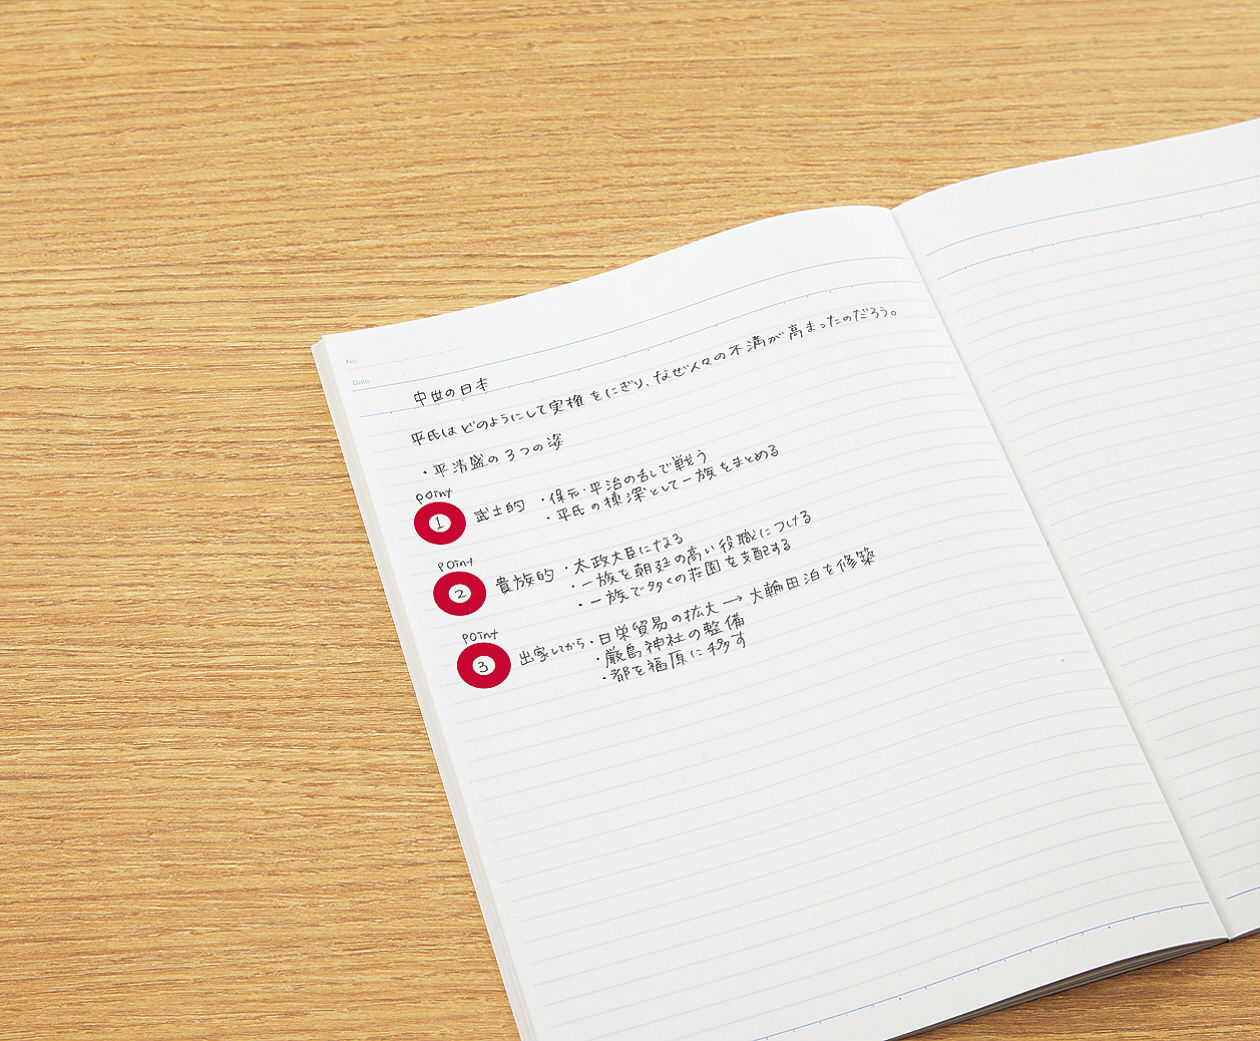 No.
Date
中世の日本
平氏はどのようにして実権をにぎり、なぜ人々の不満が高まったのだろう。
・平清盛の3つの姿
point
1 武士的 ・保元・平治の乱で戦う
・平氏の棟深として一族をまとめる
point
2 貴族的 ・太政大臣になる
・一族を朝廷の高い役職につける
・一族で多くの荘園を支配する
point
3 出家してから ・日栄貿易の拡大 → 大輪田泊を修築
・厳島神社の整備
・都を福原に移す